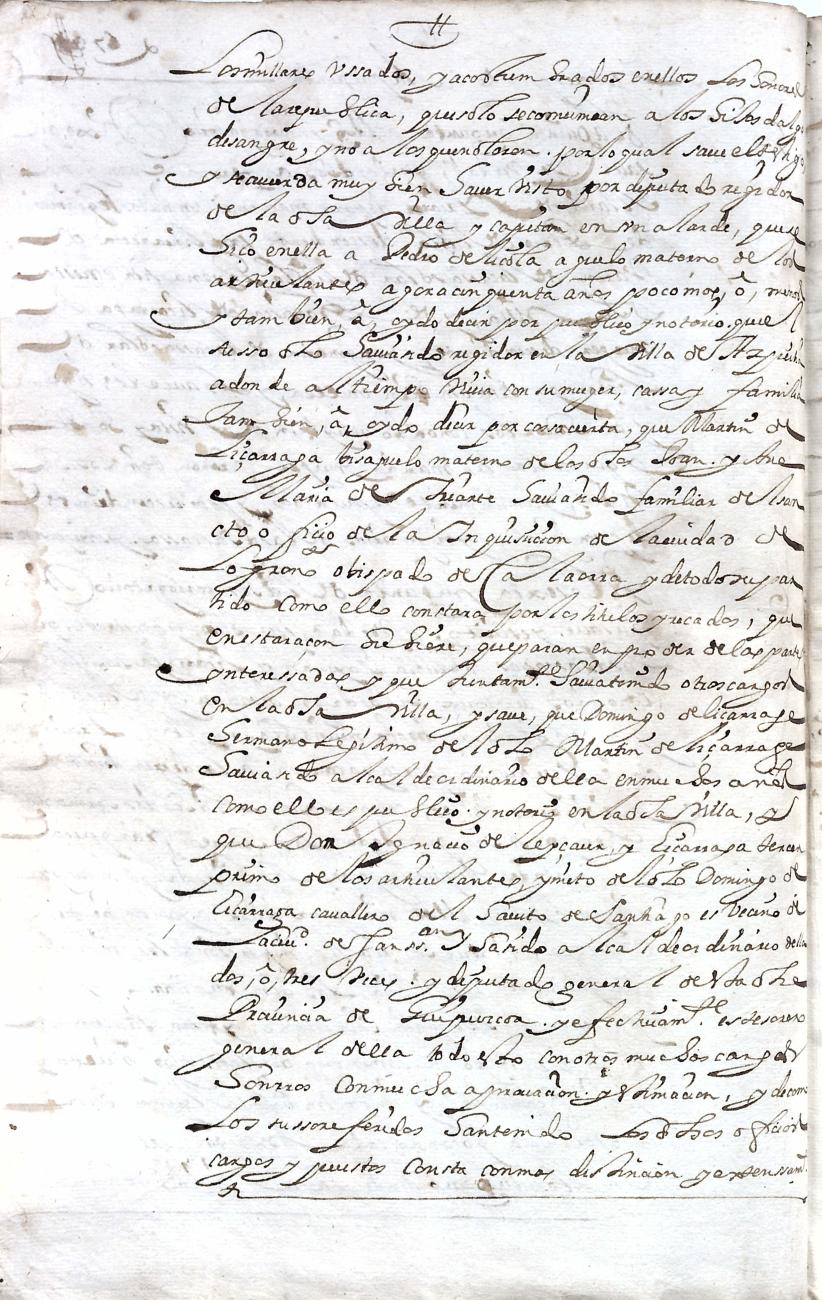 Los millares Vssados, y acostumbrados enellos Los honores
de la republica, que solo secomunican a los hijos dalgo
desangre, y no a los que no lo son. por lo qual saue el testigo
y recuerda muy bien hauer Visto por diputado regidor
de la dha Villa y capitan en vn alarde, que se
hiço enella a Pedro de Licola aguelo materno de los
articulantes agora cinquenta años poco mas, o, menos
y tambien, a, oydo decir por publico y notorio que el
susso dho hauia sido regidor en la Villa de Azpeitia
adonde al tiempo Viuia con su muger, cassa y familia
Tambien, a, oydo decir por cossa cierta, que Martin de
Liçarraga bisaguelo materno de los dhos Joan. y Ana
Maria de Iriarte hauia sido familiar del san
cto oficio de la Inquisicion de la ciudad de
Logroño obispado de Calaorra y de todo su par
tido como ello constara por los titulos y recados, que
en esta raçon hubiere, que paran en poder de las partes
ynteressadas y que juntamte hauia tenido otros cargos
en la dha Villa, y saue, que Domingo de liçarraga
hermano Legitimo del dho Martin de liçarraga
hauia sido alcalde ordinario della en muchos años
como ello es publico. y notorio en la dha Villa, y
que Don Ignacio de leyçaur, y Liçarraga tercer
primo de los articulantes, y nieto del dho Domingo de
Liçarraga cauallero del hauito de Santiago es Vecino de
La ciud. de San ss.an y ha sido alcalde ordinario della
dos, o, tres Veces. y diputado general de esta dha
Prouincia de Guipuzcoa. y efectiuamte. es tesorero
general della todo esto con otros muchos cargos
honrros con mucha aprouacion. y estimacion, y de como
Los sussoreferidos han tenido Los dhos oficios
cargos y puestos consta con mas distincion y extenssamte